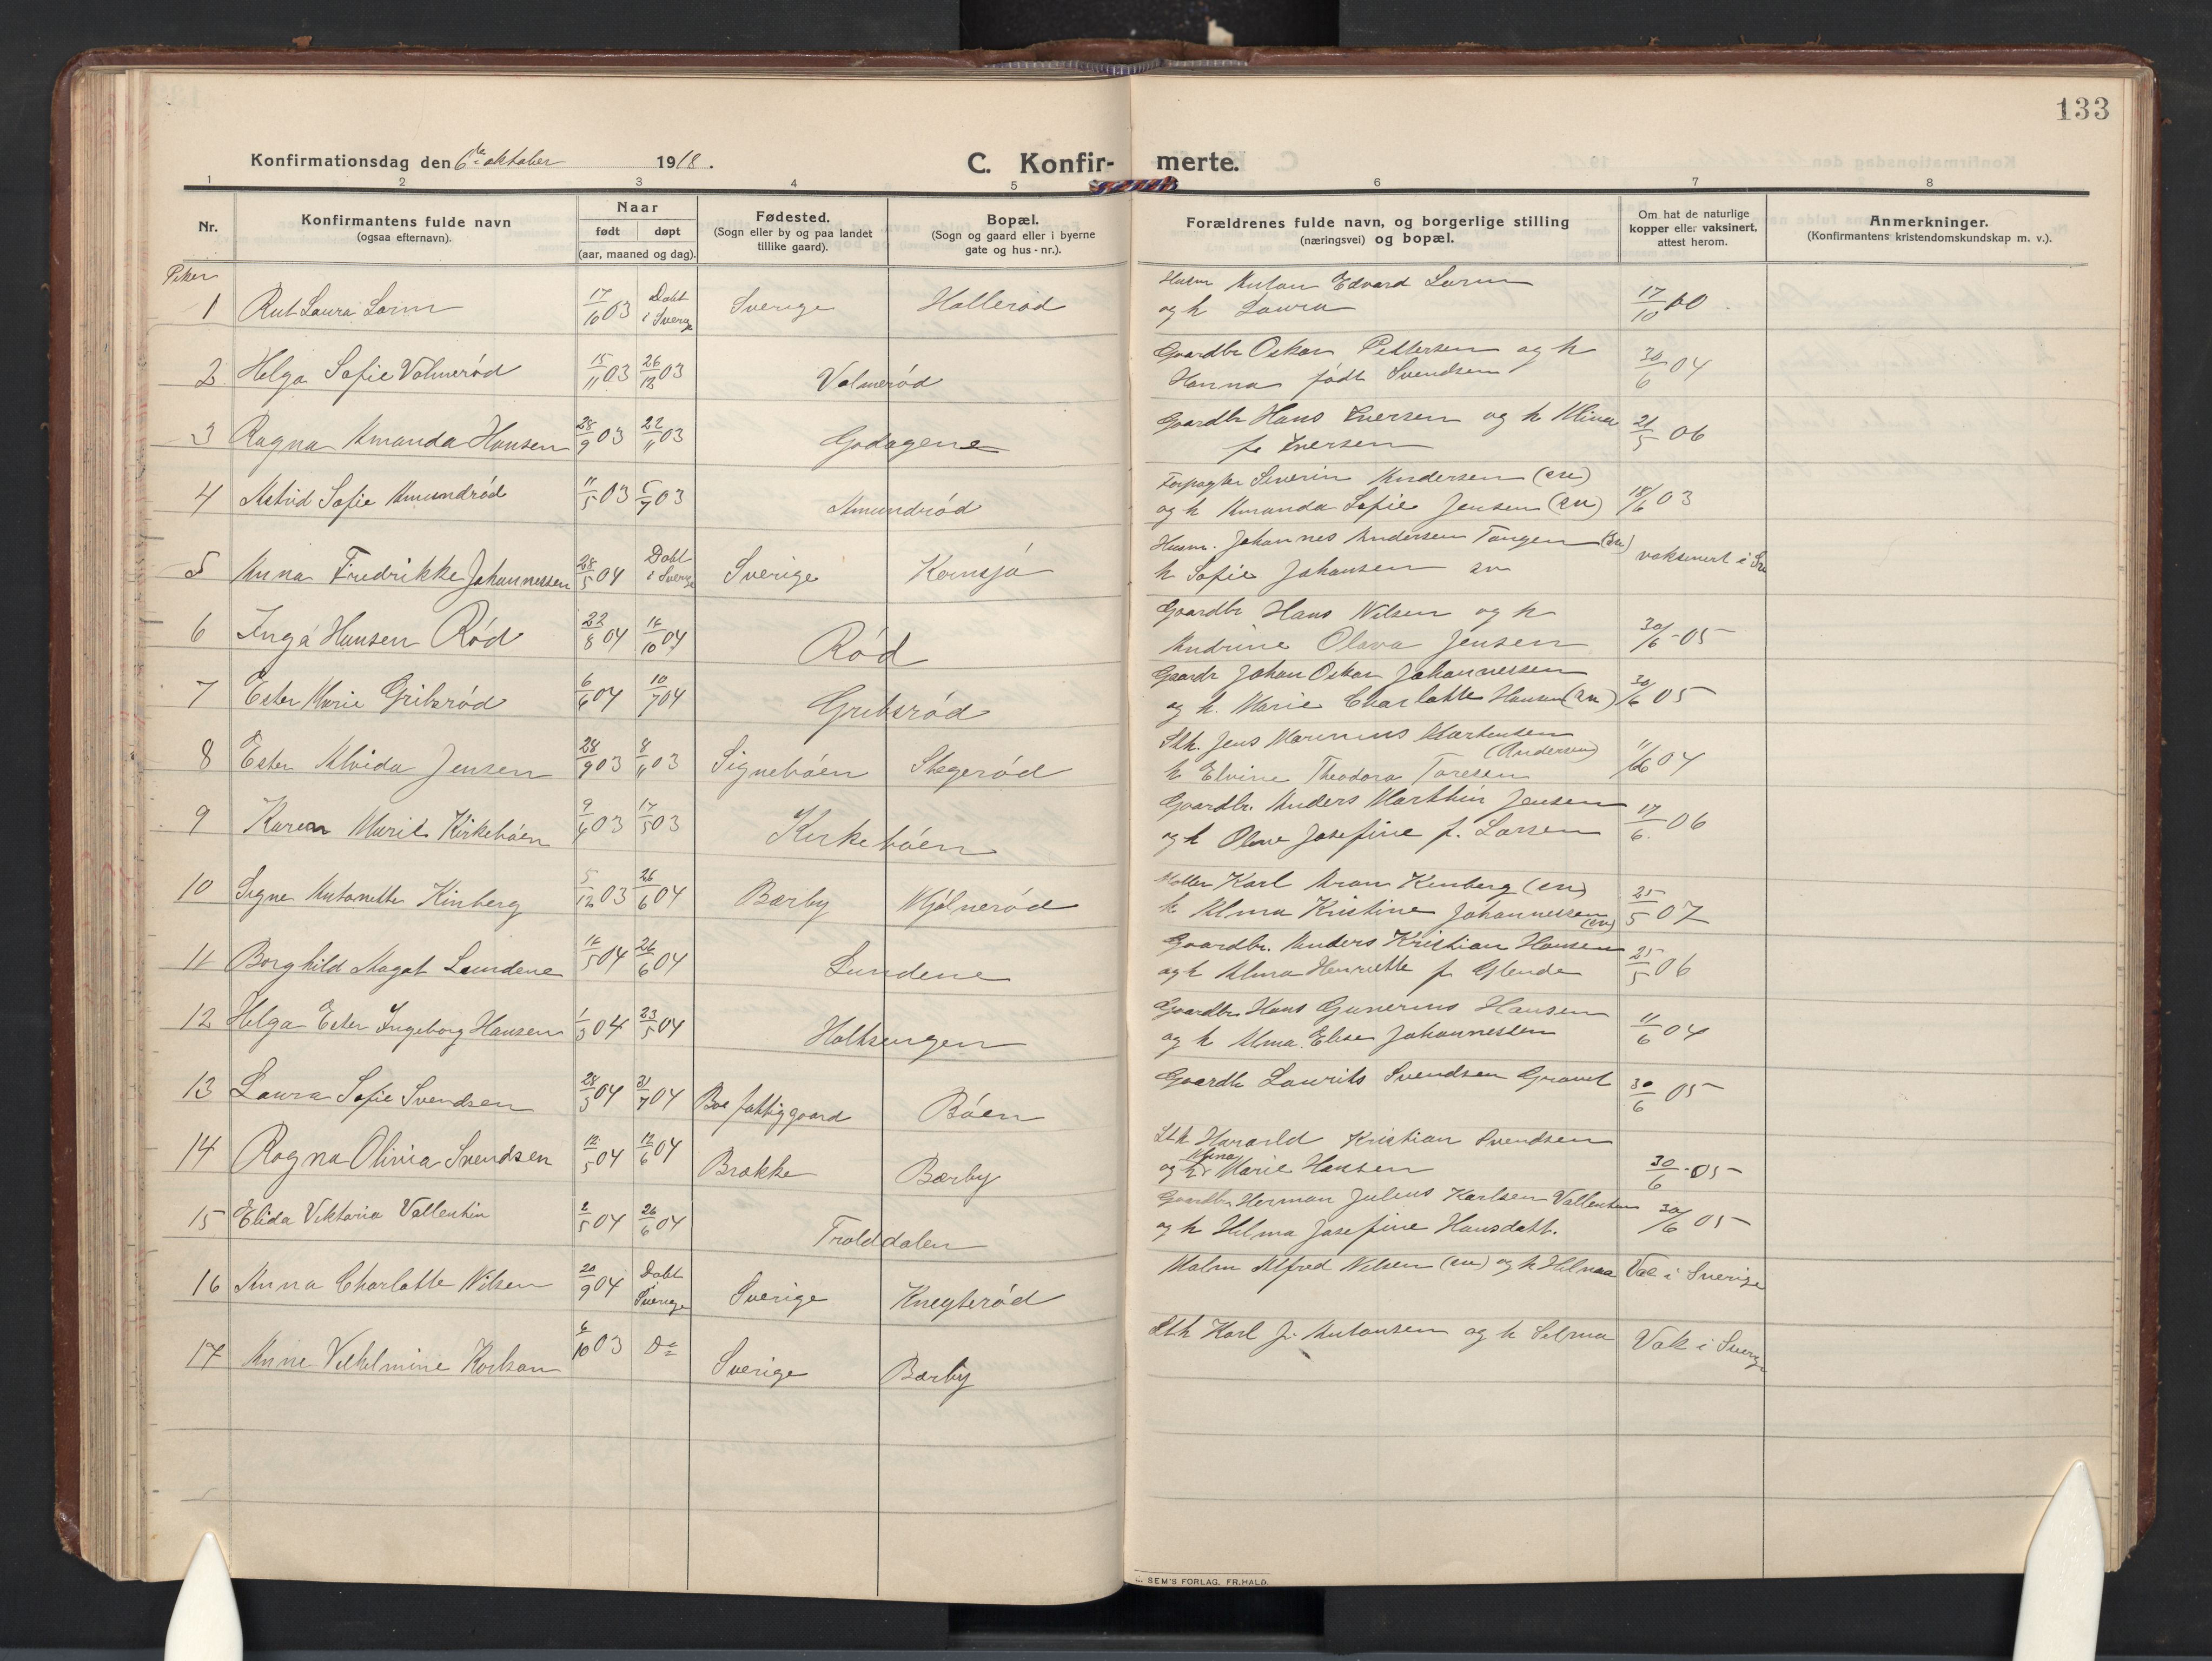 133
Konfirmationsdag den 6te oktober 1918.
C. Konfirmerte.
1 2 3 4 5 6 7 8
Nr.
Konfirmantens fulde navn
(ogsaa efternavn).
Naar
født døpt
(aar, maaned og dag).
Fødested.
(Sogn eller by og paa landet
tillike gaard).
Bopæl.
(Sogn og gaard eller i byerne
gate og hus-nr.).
Forældrenes fulde navn, og borgerlige stilling
(næringsvei) og bopæl.
Om hat de naturlige
kopper eller vaksinert,
attest herom.
Anmerkninger.
(Konfirmantens kristendomskundskap m. v.).
Piker
1 Rut Laura Lorin 17/10 03 Døbt i Sverige Sverige Hallerød
Husm Anton Edvard Lorin
og h Laura 17/10 00
2 Helga Sofie Volmerød 15/11 03 26/12 03 Volmerød
Gaardbr Oskar Pettersen og h
Hanna født Svendsen 30/6 04
3 Ragna Amanda Hansen 28/9 03 22/11 03 Godagene
Gaardbr Hans Iversen og h Alina
f. Iversen 21/5 06
4 Astrid Sofie Amundrød 11/5 03 5/7 03 Amundrød
Forpagter Severin Andersen (sv)
og h Amanda Sofie Jensen (sv) 18/6 03
5 Anna Fredrikke Johannessen 28/5 04 Døbt i Sverige Sverige Kornsjø
Husm. Johannes Andersen Tangen (sv)
h Sofie Johansen sv vaksinert i Sv
6 Inga Hansen Rød 22/8 04 16/10 04 Rød
Gaardbr Hans Nilsen og h
Andrine Olava Jensen 30/6 -05
7 Ester Marie Gribsrød 6/6 04 10/7 04 Gribsrød
Gaardbr Johan Oskar Johannessen
og h. Marie Charlotte Hansen (sv) 30/6 05
8 Ester Alvida Jensen 28/9 03 8/11 03 Signebøen Stegerød
Sth. Jens Marinius Martensen
(Andersen)
h Elvine Theodora Toresen 11/6 04
9 Karen Marit Kirkebøen 9/4 03 17/5 03 Kirkebøen
Gaardbr. Anders Marthin Jensen
og h Olene Josefine f. Larsen 17/6 06
10 Signe Antonette Kinberg 5/12 03 26/6 04 Bærby Mjølnerød
Møller Karl Aron Kinberg (sv)
h Alma Kristine Johannessen (sv) 25/5 07
11 Borghild Magot Lundene 16/5 04 26/6 04 Lundene
Gaardbr. Anders Kristian Hansen
og h Alma Henriette f. Glende 25/5 06
12 Helga Ester Ingeborg Hansen 1/3 04 23/5 04 Holtsengen
Gaardbr Hans Gunerius Hansen
og h Alma Elise Johannessen 11/6 04
13 Laura Sofie Svendsen 28/5 04 31/7 04 Boe fattiggaard Bøen
Gaardbr Laurits Svendsen Gravet 30/6 05
14 Ragna Olivia Svendsen 12/5 04 12/6 04 Brække Bærby
Sth Harald Kristian Svendsen
og h Anna Marie Hansen 30/6 -05
15 Elida Viktoria Vallentin 2/5 04 26/6 04 Trolddalen
Gaardbr Herman Julius Karlsen Vallentin
og h Hilma Josefine Hansdatt. 30/6 05
16 Anna Charlotte Nilsen 20/9 04 Døbt i Sverige Sverige Knegterød
Malm Alfred Nilsen (sv) og h Hilma Vac i Sverige
17 Anne Vilhelmine Karlson 6/10 03 Do Sverige Bærby
Sth Karl J. Antonsen og h Selma Vak i Sverige
E. SEM'S FORLAG, FR.HALD.